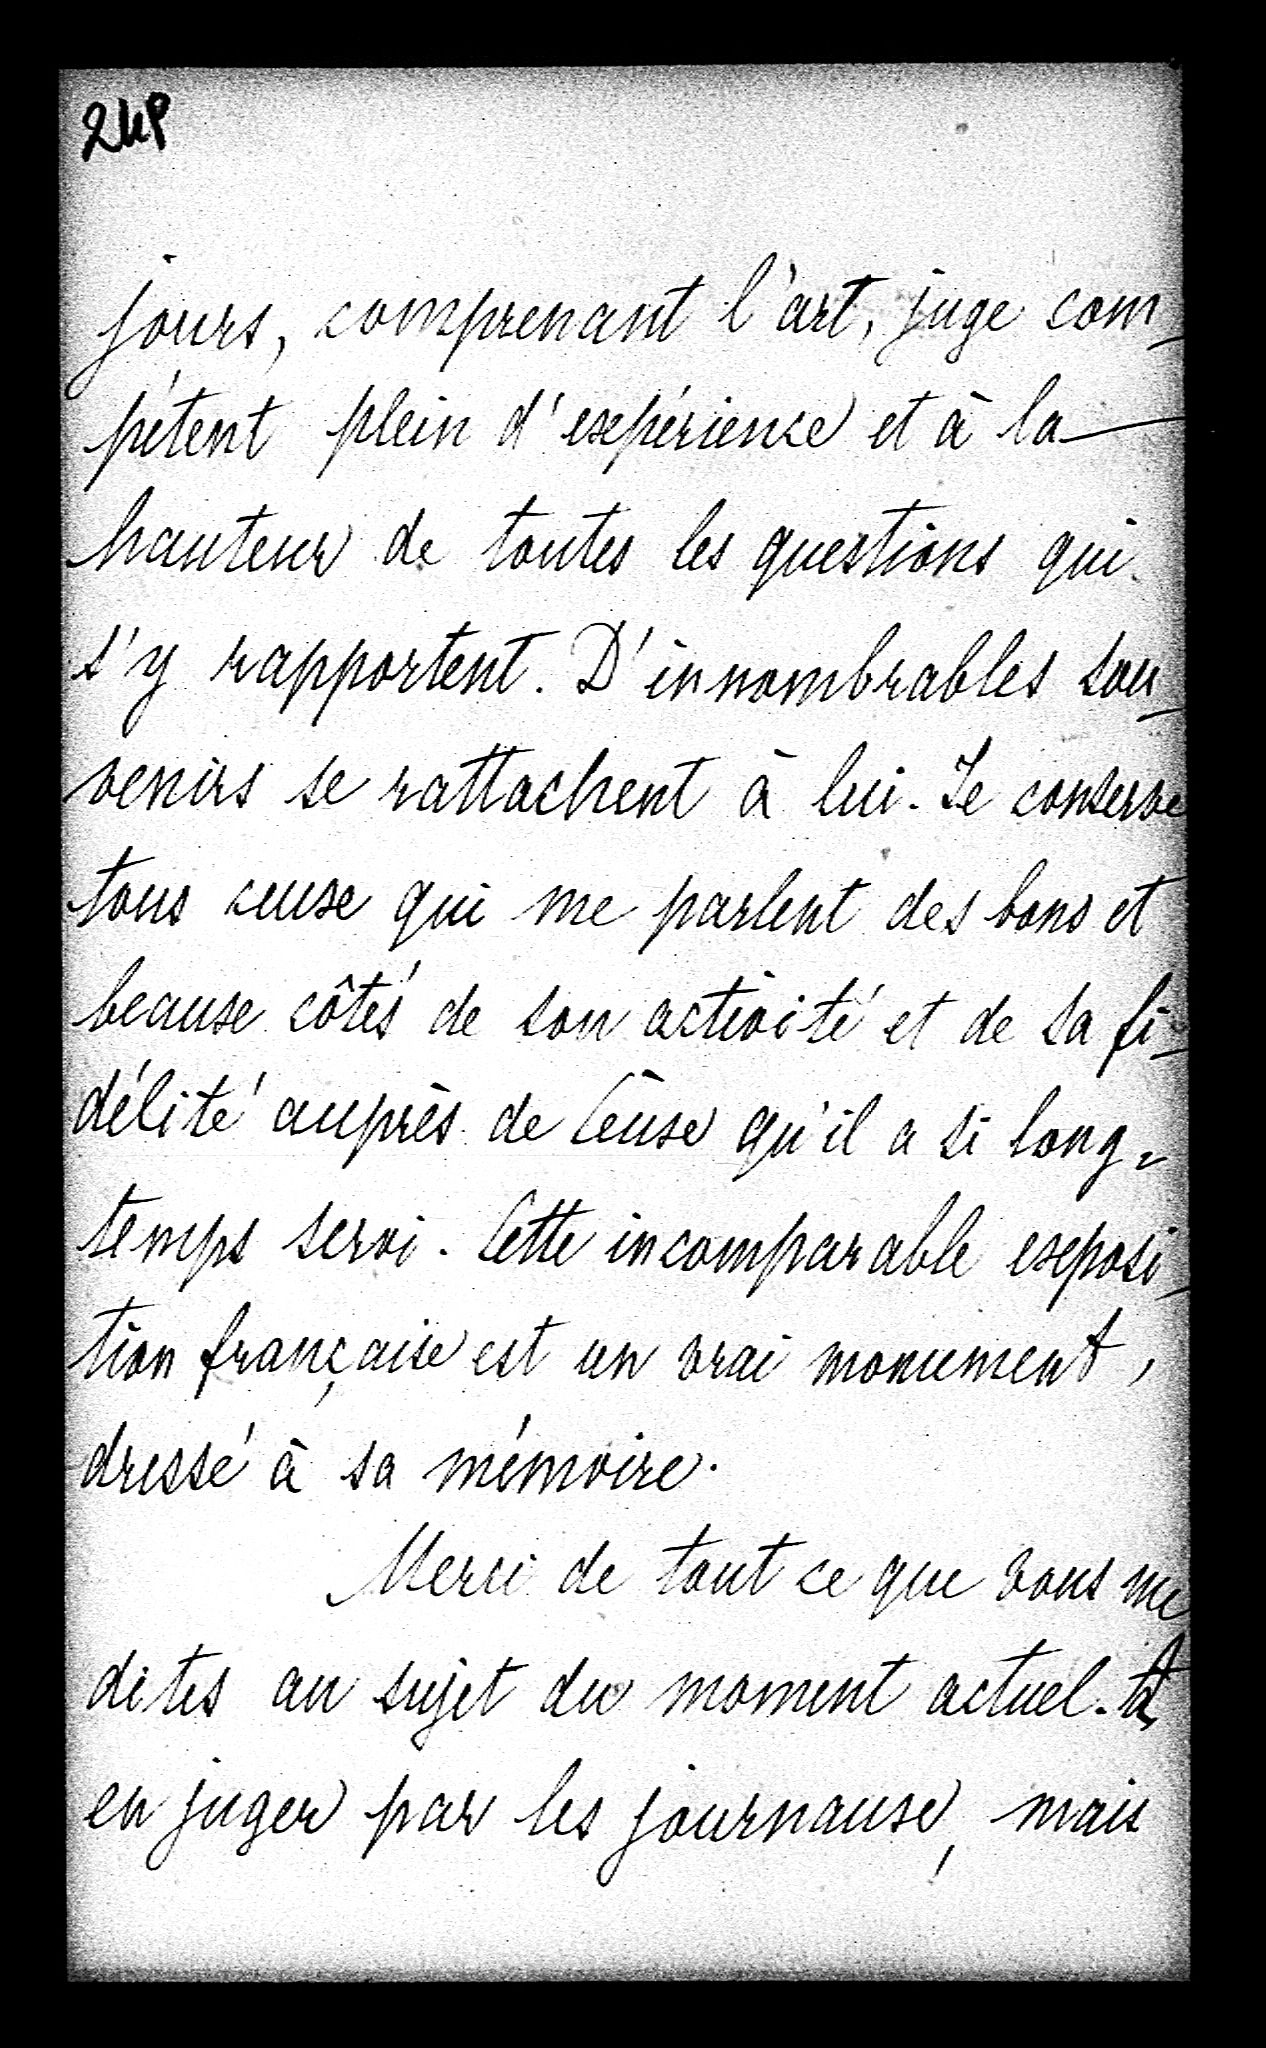 jours, comprenant l'art, juge com-
pétent plein d'expérience et à la
hauteur de toutes les questions qui
s'y rapportent. D'innombrables sou-
venirs se rattachent à lui. Je conserve
tous ceux qui me parlent des bons et
beaux côtés de son activité et de sa fi-
délité auprès de Ceux qu'il a si long-
temps servi. Cette incomparable exposi-
tion française est un vrai monument,
dressé à sa mémoire.
Merci de tout ce que vous me
dites au sujet du moment actuel. A
en juger par les journaux, mais